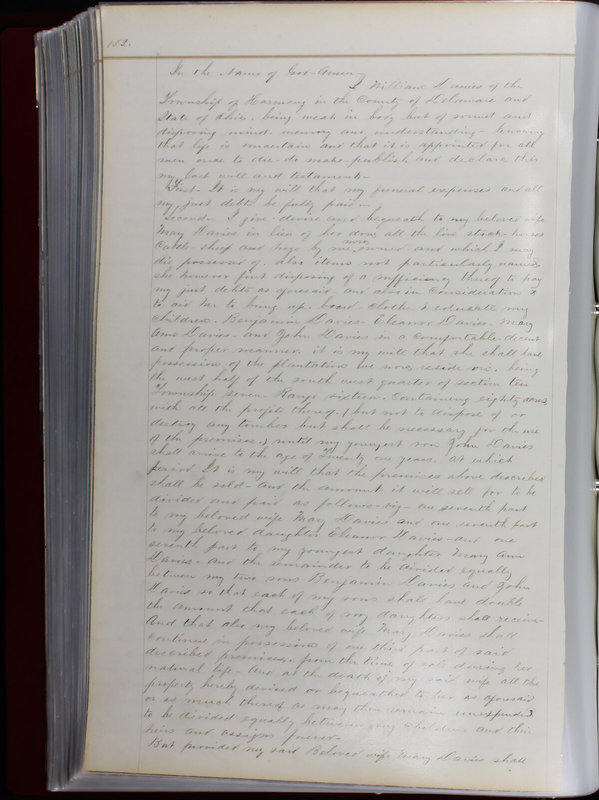 152.
In the Name of God Amen
I William Davies of the
Township of Harmony in the County of Delaware and
State of Ohio. being weak in body but of sound and
disposing mind memory and understanding - knowing
that life is uncertain and that it is appointed for all
men once to die - do make - publish and declare this
my last will and testament -
First - It is my will that my funeral expenses and all
my just debts be fully paid -
Second - I give - devise and bequeath to my beloved wife
Mary Davies in lieu of her dower all the live stock - horses
Cattle sheep and hogs by me now owned and which I may
die possessed of. also items not particularly named
she however first disposing of a sufficiency thereof to pay
my just debts as aforesaid and also in Consideration &
to aid her to bring up - board - clothe & educate my
children - Benjamin Davies - Eleanor Davies - Mary
Ann Davies - and John Davies in a comfortable - decent
and proper manner. it is my will that she shall have
possession of the plantation we now reside on. being
the west half of the south west quarter of section ten
Township seven Range sixteen. Containing eighty acres
with all the profits thereof, (but not to dispose of or
destroy any timber but shall be necessary for the use
of the premises,) until my youngest son John Davies
shall arrive to the age of Twenty one years. at which
period It is my will that the premises above described
shall be sold - and the amount it will sell for to be
divided and paid as follows - viz - one seventh part
to my beloved wife Mary Davies and one seventh part
to my beloved daughter Eleanor Davies - and one
seventh part to my youngest daughter Mary Ann
Davies - and the remainder to be divided equally
between my two sons Benjamin Davies and John
Davies so that each of my sons shall have double
the amount that each of my daughters shall receive
And that also my beloved wife Mary Davies shall
Continue in possession of one third part of said
described premises. from the time of sale during her
natural life - And at the death of my said wife all the
property hereby devised or bequeathed to her as aforesaid
or as much thereof as may then remain unexpended
to be divided equally between my children and their
heirs and assigns forever -
But provided my said Beloved wife Mary Davies shall